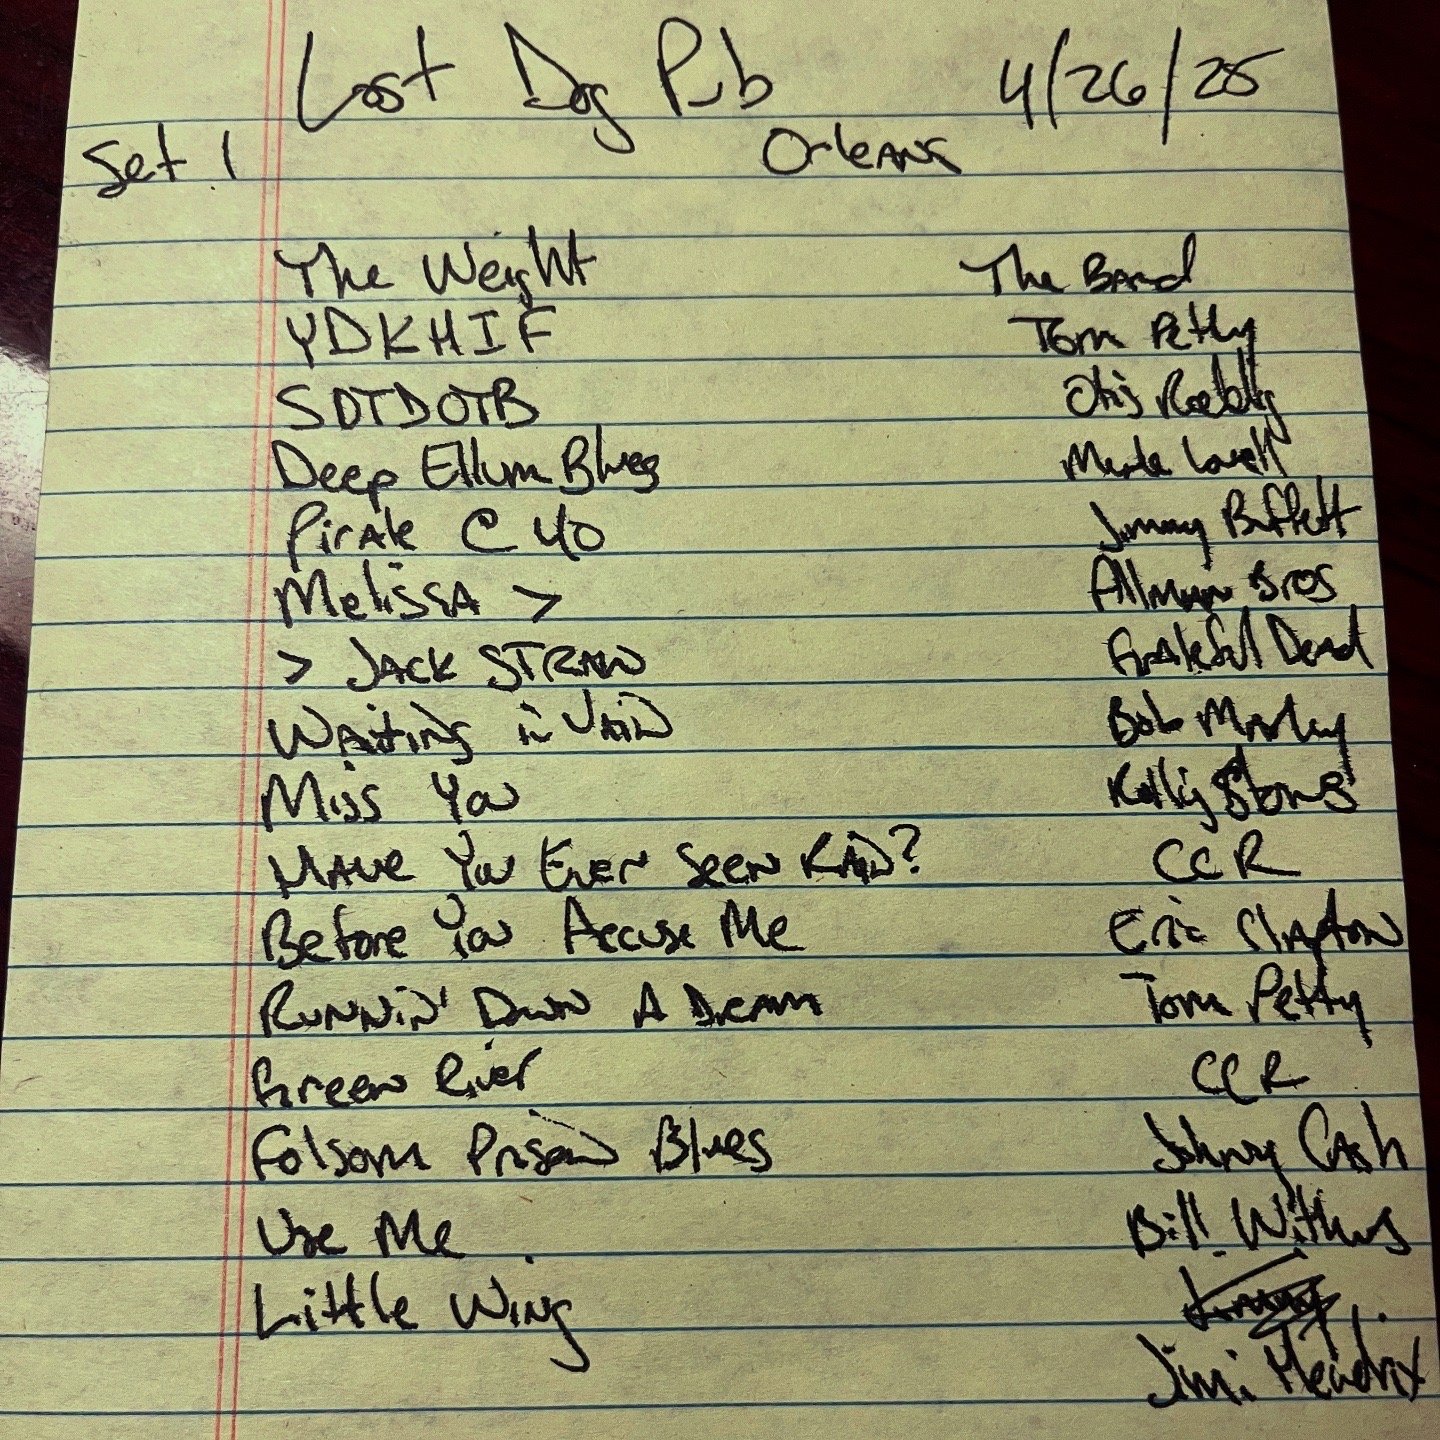 Lost Dog Pub 4/26/25
Set 1 Orleans
The Weight The Band
YDKHIF Tom Petty
SDTDOTB Otis Redding
Deep Ellum Blues
Pirate @ 40 Jimmy Buffett
Melissa > Allman Bros
> JACK STRAW Grateful Dead
Waiting in Vain Bob Marley
Miss You Rolling Stones
Have You Ever Seen Rain? CCR
Before You Accuse Me Eric Clapton
Runnin' Down A Dream Tom Petty
Green River CCR
Folsom Prison Blues Johnny Cash
Use Me Bill Withers
Little Wing
Jimi Hendrix